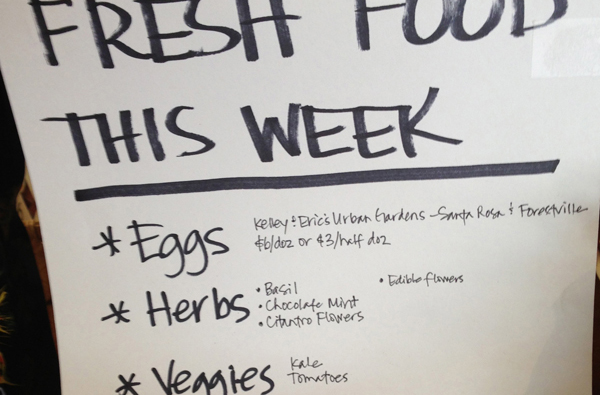 FRESH FOOD
THIS WEEK
* Eggs
Kelley & Eric's Urban Gardens - Santa Rosa & Forestville
$6/doz or $3/half doz
* Herbs
• Basil
• Chocolate Mint
• Cilantro Flowers
• Edible flowers
* Veggies
Kale
Tomatoes